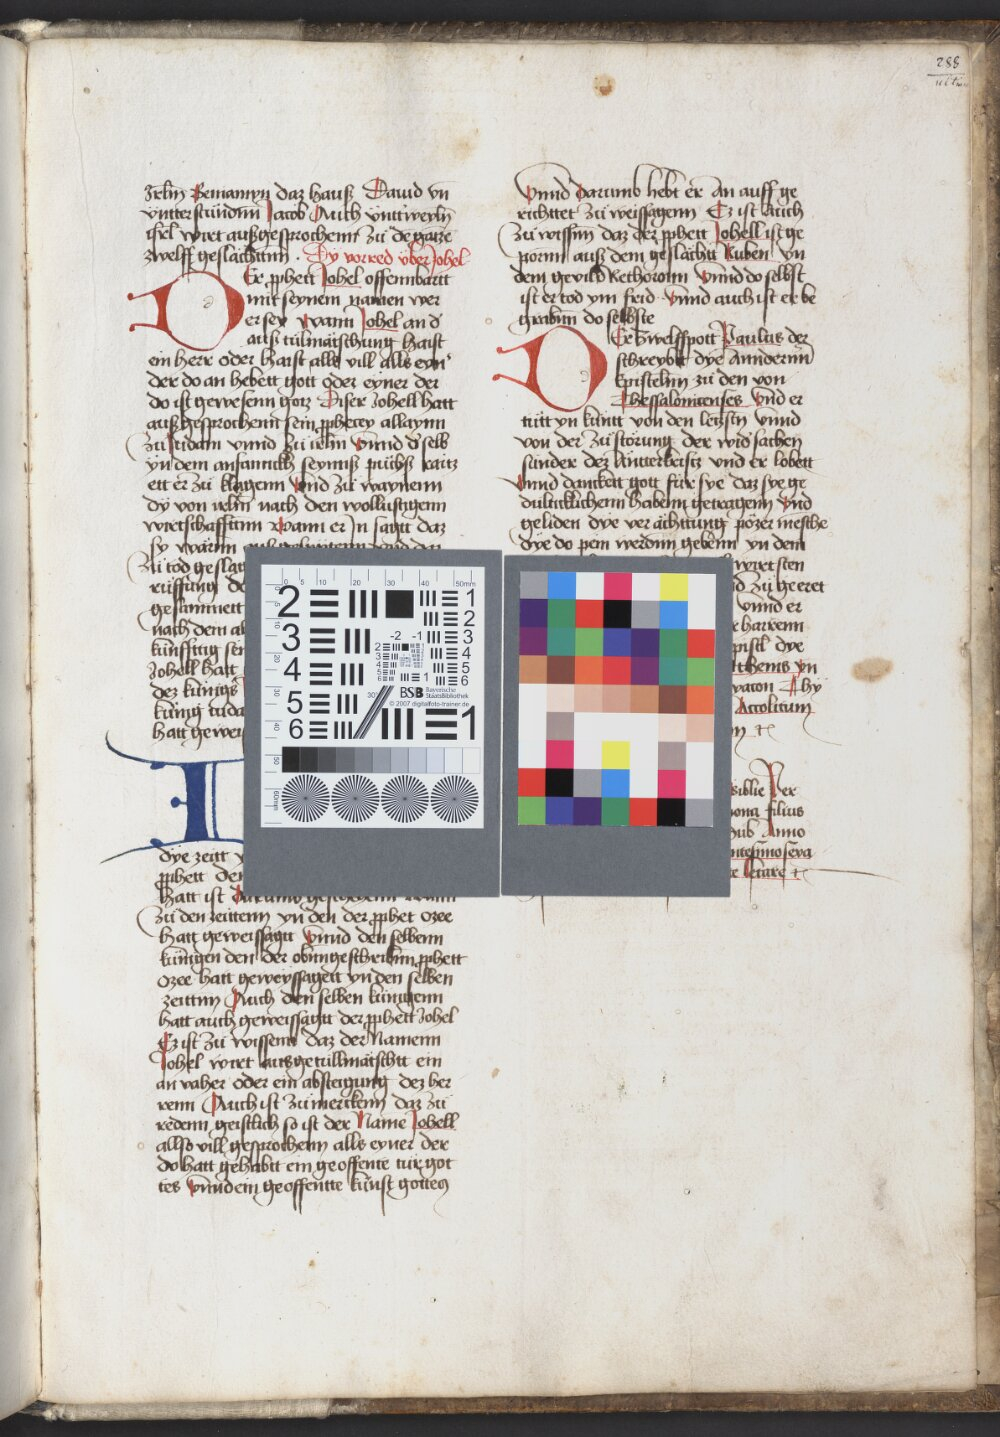 288
Jrlm Beniamyn daz hauß Dauid vn
vntterstündnn Jacob Auch vnttweyln
isrl wirt außgesprochenn zü de gaze
zwelff geslächtnn . Dy vorred über Johel
Er pphett Johel offennbartt
mit seynem namen wer
er sey wann Johel an d
auß tülmätschung haist
ein herr oder haist alls vill alls eyn
der do an hebett gott oder eyner der
do ist gewesenn gotz Diser Johell hatt
auß gesprochenn sein pphecey allaynn
zu Judam vnnd zü irlm vnnd d selb
yn dem anfannckh seyniß püchß raitz
ett er zü klagenn vnd zü waynenn
dy von irlm nach den wollustigenn
wirtschafftnn wann er Jn sagtt daz
sy wärnn
zü tod geslag
rüffung de
gesammett
nach dem ab
künfftig sei
Johell hatt
dez künigs
künig iuda
hatt gewei
dye zeitt
pphett der
hatt ist Darumb geschehenn wann
zü den zeittenn yn den der pphet ozee
hatt geweissagtt vnnd den selbenn
künigen den der obingeschribnn pphett
ozee hatt geweyssagett yn den selben
zeittnn Auch den selben künigenn
hatt auch geweissagtt der pphett Johel
Ez ist zü wissenn daz der Namenn
Johel wirt ausgetüllmätschtt ein
an vaher oder ein absteigung dez her
renn Auch ist zü merckenn daz zü
redenn geistlich so ist der Name Johell
allso vill gesprochenn alls eyner der
do hatt gehabtt ein geoffente tür got
tes vnnd ein geoffentte künst gottes
vnnd darumb hebt er an auff ge
richttet zü weissagenn Ez ist auch
zü wissnn daz der pphett Johell ist ge
pornn auß dem geslächtt Ruben vn
dem gevild Bethoronn vnnd do selbst
ist er tod ynn frid vnnd auch ist er be
grabnn do selbste
Er zwelffpott Paulus der
schreybtt dye Anndernn
Epistelnn zü den von
Thessalonicenses vnd er
tütt yn künt von den letzstn vnnd
von der zü störung der wid sachen
sünder dez Antterkristz vnd er lobett
vnnd danckett gott für sye daz sye ge
dulticklichenn habenn getragenn vnd
geliden dye ver ächttung pözer mesche
dye do pein werdnn gebenn yn dem
wirt sten
d zü geeret
vnnd er
e harrenn
pistl dye
thenis yn
Accolitum
siblie per
filius
sub Anno
letare
0 5 10 20 30 40 50mm
2 1
2
3 3
4 4
5
6 6
-2 -1
BSB Bayerische StaatsBibliothek
© 2007 digitalfoto-trainer.de
1